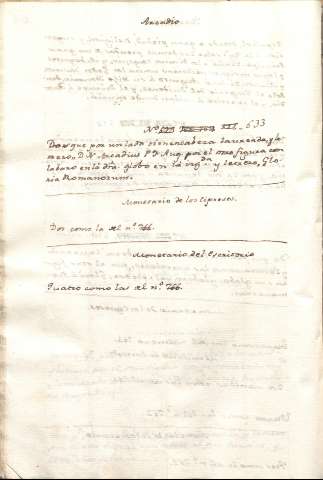 Arcadio
Nº 633
Dos que por un lado tienen cabeza laureada, y le
trero, D. N. Arcadius P. F. Aug. por el otro figura con
labaro en la dra. globo en la izqda. y letrero, Glo
ria Romanorum.
Monetario de los Cipreses.
Dos como la del nº. 766.
Monetario del Escritorio
Quatro como las del nº. 766.